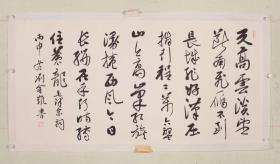 天高雲淡望
断南飛雁不到
長城非好漢屈
指行程二萬六盤
山上高峰紅旗
漫捲西風今日
長纓在手何時縛
住蒼龍
丙申
書